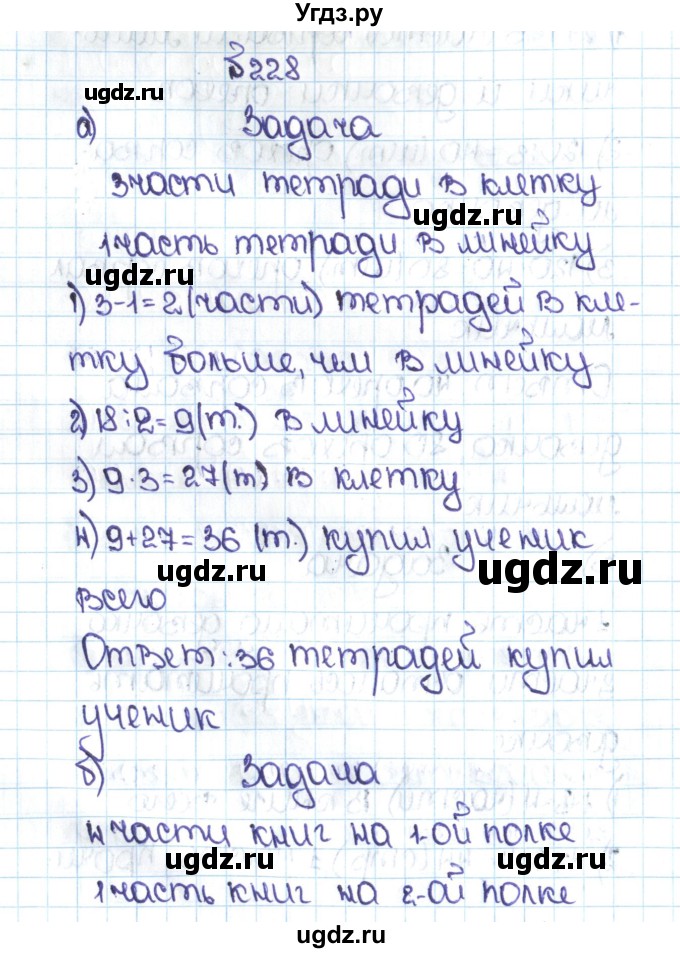 Угдз.ру
№228
ugdz.ru
а) Задача
3 части тетради в клетку
ugdz.ru
1 часть тетради в линейку
ugdz.ru
1) 3-1=2 (части) тетрадей в кле-
тку больше, чем в линейку
2) 18:2=9(т.) в линейку
3) 9·3=27(т) в клетку
4) 9+27=36 (т.) купил ученик
ugdz.ru ugdz.ru
всего
Ответ: 36 тетрадей купил
ученик
б) Задача
4 части книг на 1-ой полке
ugdz.ru ugdz.ru
1 часть книг на 2-ой полке
ugdz.ru